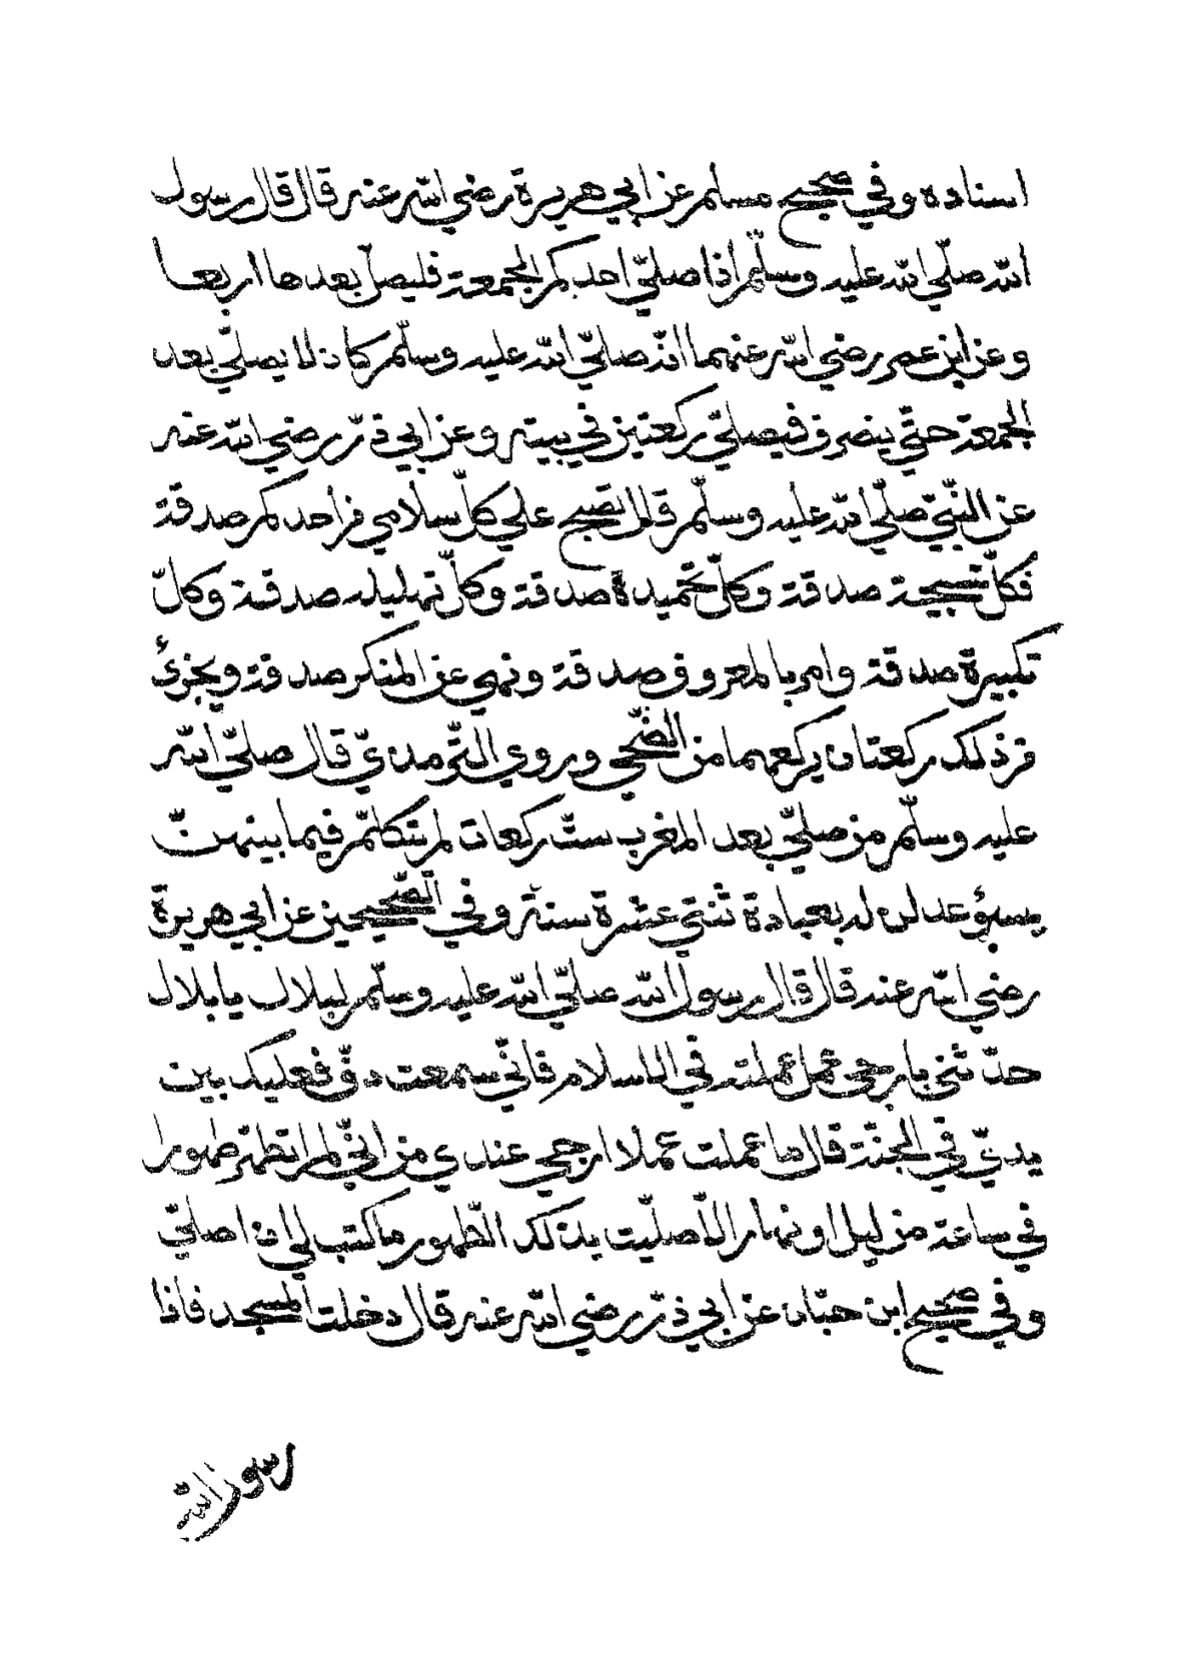 اسناده وفي صحيح مسلم عن ابي هريرة رضي الله عنه قال قال رسول
الله صلّى الله عليه وسلّم اذا صلّى احدكم الجمعة فليصل بعدها اربعا
وعن ابن عمر رضي الله عنهما انّه صلّى الله عليه وسلّم كان لا يصلّي بعد
الجمعة حتّى ينصرف فيصلّي ركعتين في بيته وعن ابي ذرّ رضي الله عنه
عن النّبيّ صلّى الله عليه وسلّم قال يصبح على كلّ سلامى من احدكم صدقة
فكلّ تسبيحة صدقة وكلّ تحميدة صدقة وكلّ تهليله صدقة وكلّ
تكبيرة صدقة وامر بالمعروف صدقة ونهي عن المنكر صدقة ويجزئ
من ذلك ركعتان يركعهما من الضّحى وروي التّرمديّ قال صلّى الله
عليه وسلّم من صلّى بعد المغرب ستّ ركعات لم يتكلّم فيما بينهنّ
بسوء عدلن له بعبادة ثنتي عشرة سنة وفي الصّحيحين عن ابي هريرة
رضي الله عنه قال قال رسول الله صلّى الله عليه وسلّم لبلال يا بلال
حدّثني بارجى عمل عملته في الاسلام فانّي سمعت دفّ نعليك بين
يديّ في الجنّة قال ما عملت عملا ارجى عندي من انّي لم اتطهّر طهورا
في ساعة من ليل او نهار الّا صلّيت بذلك الطّهور ما كتب لي ان اصلّي
وفي صحيح ابن حبّان عن ابي ذرّ رضي الله عنه قال دخلت المسجد فاذا
رسول الله